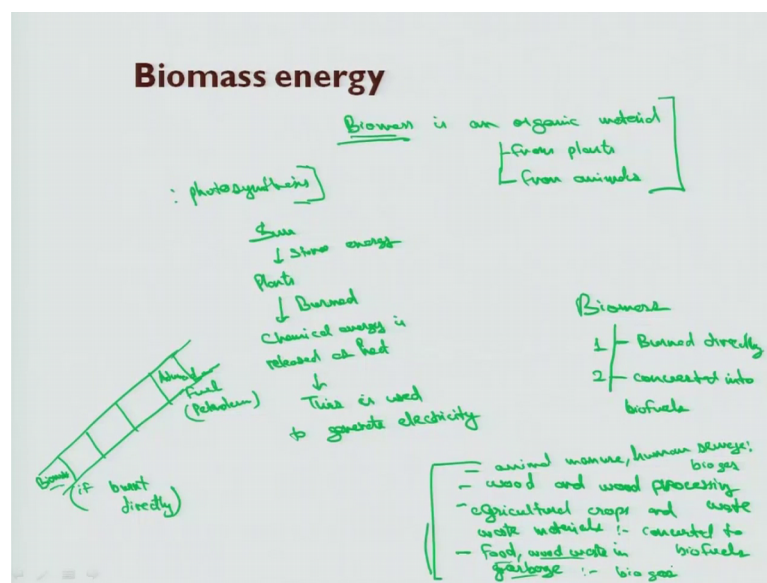 Biomass energy
Biomass is an organic material
from plants
from animals
: photosynthesis
Sun
↓ Store energy
Plants
↓ Burned
Chemical energy is
released as heat
↓
This is used
to generate electricity
Biomass
1 Burned directly
2 converted into
biofuels
Fuel
(Petroleum)
Biomass
(if burnt
directly)
- animal manure, human sewage:
biogas
- wood and wood processing
waste
- agricultural crops and
waste materials :- converted to
biofuels
- Food, wood waste in
garbage :- biogas